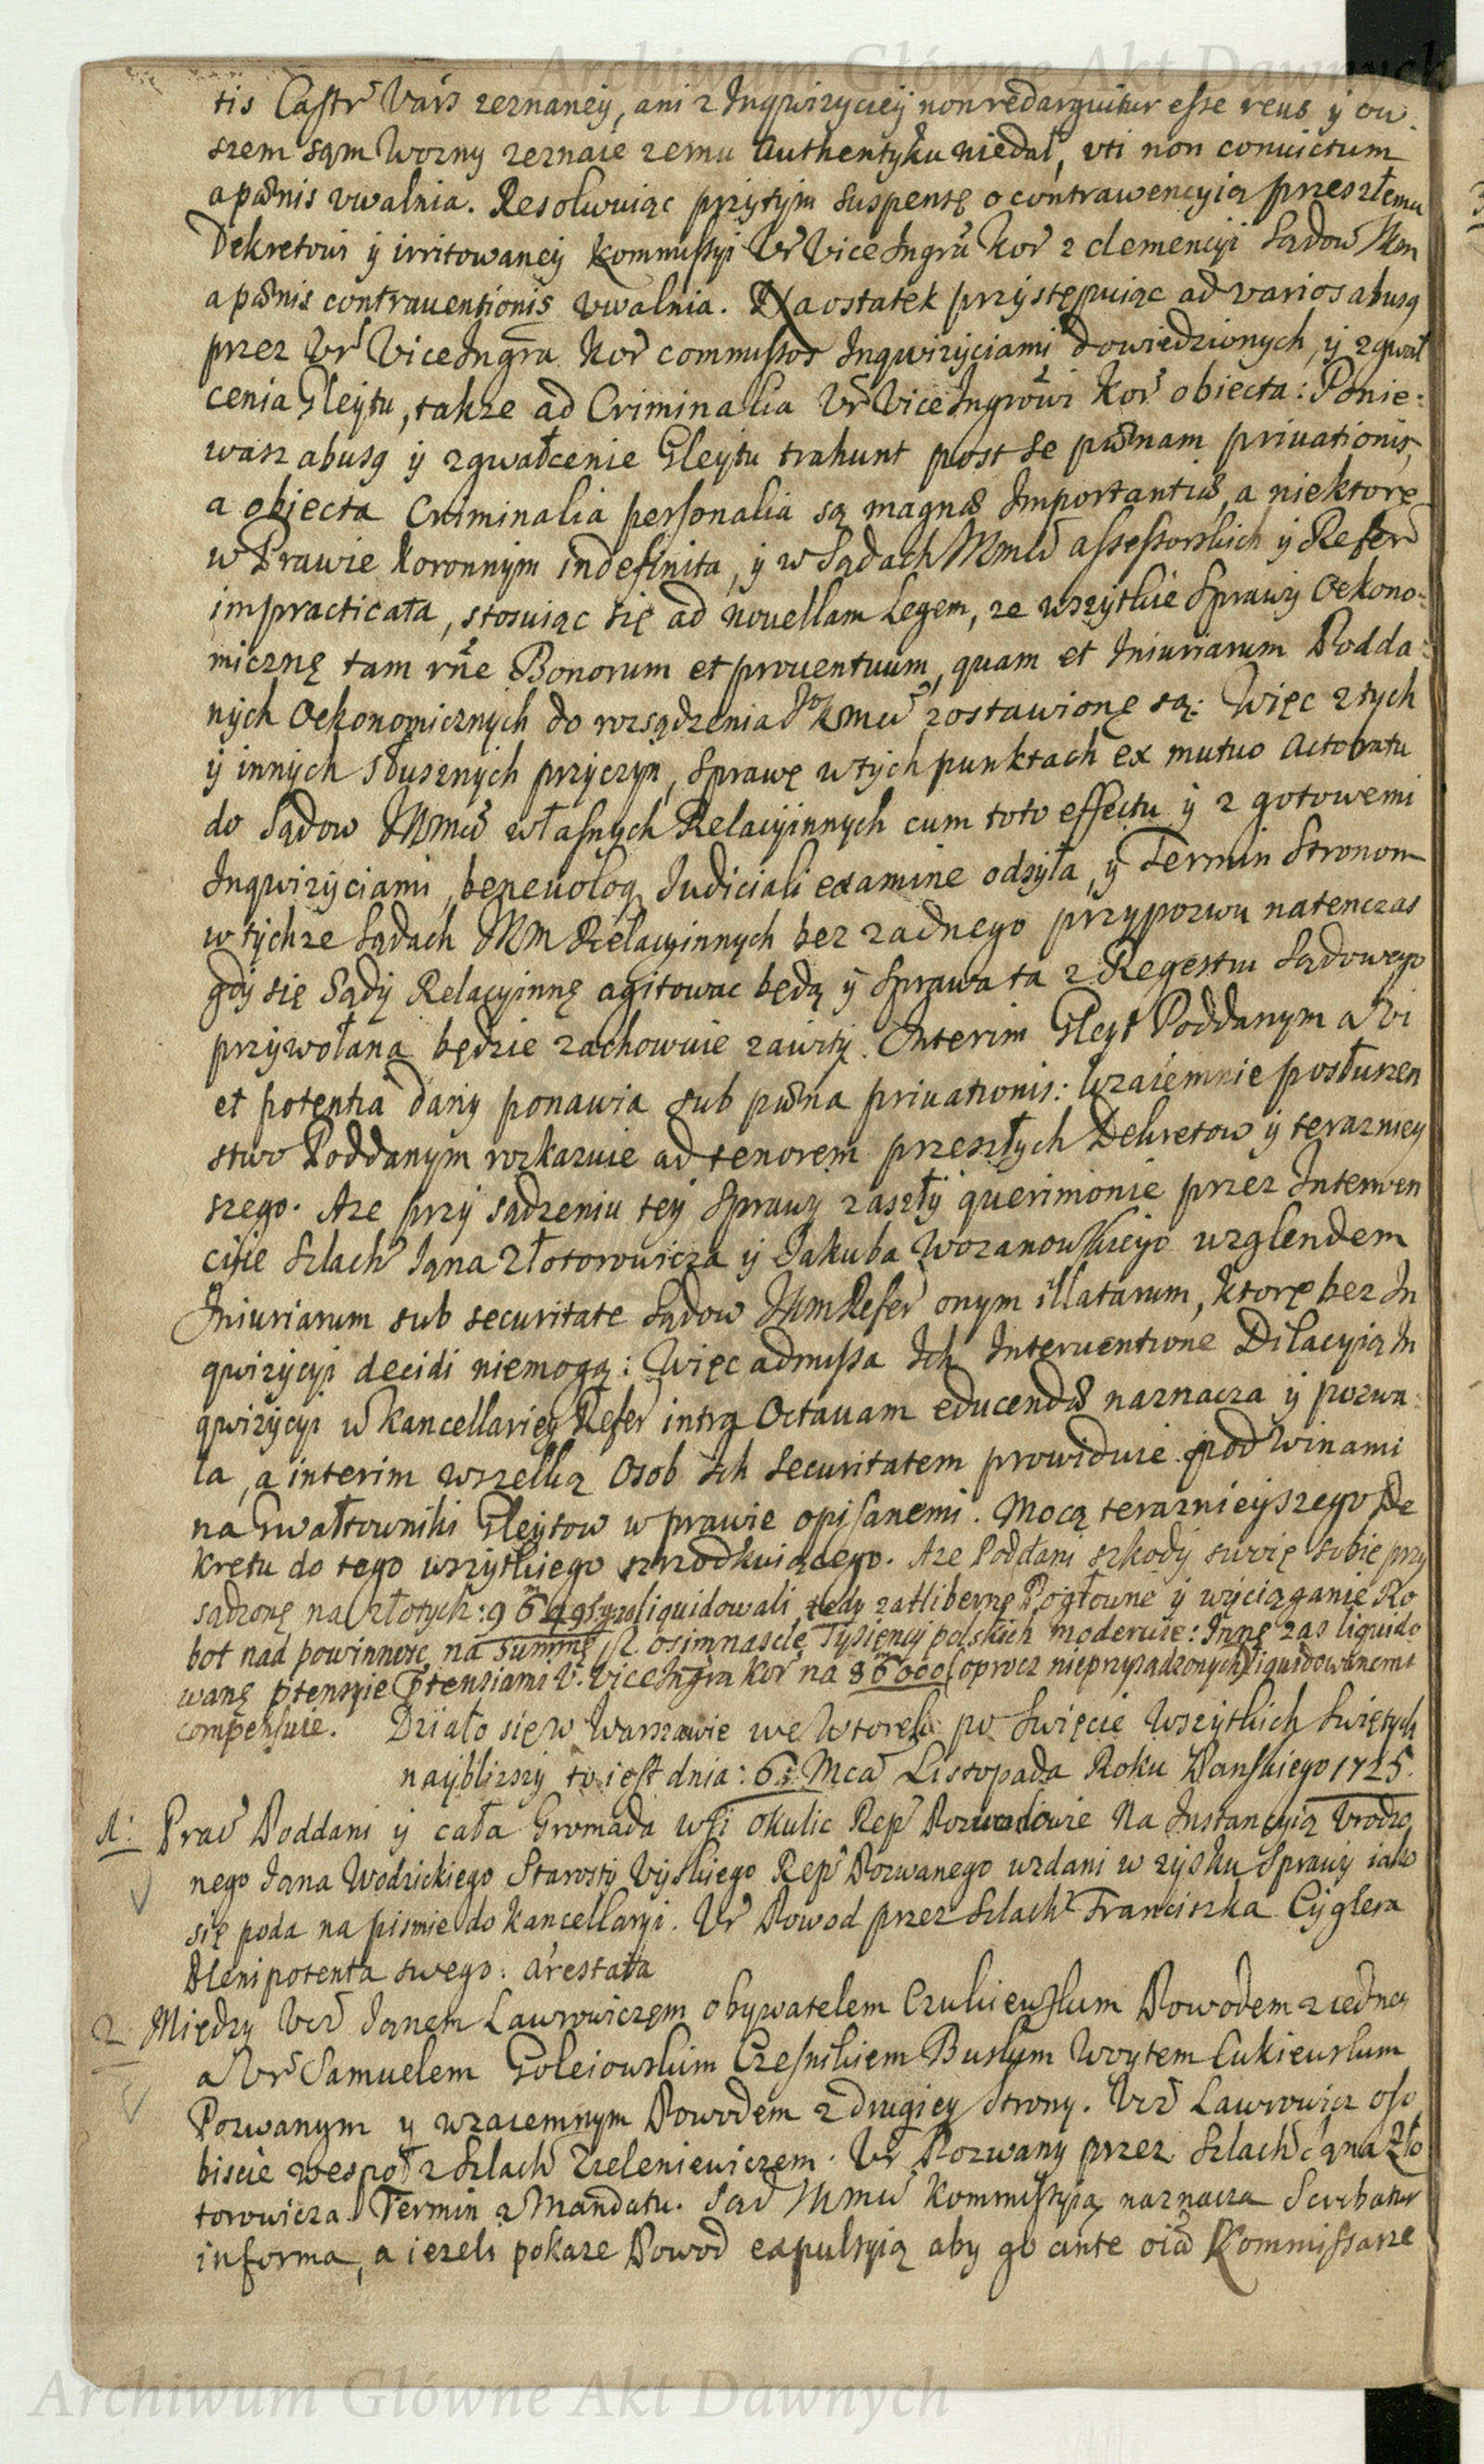 Archiwum Główne Akt Dawnych
tis Castr Vars zeznaney, ani z Inqwizycyey non redarguitur esse reus y ow
szem sąm Wozny zeznaie zemu Authentyku niedał, uti non convictum
a pœnis vwalnia. Resolwuiąc przytym suspensę o contrawencyią przeszłemu
Dekretowi y irritowaney Kommissyi Ur Vice Ingra Kor z clemencyi Sądow JKM
a pœnis contrauentionis vwalnia. Naostatek przystępuiąc ad varios abusq
przez Ur Vice Ingra Kor commissos Inqwizyciami dowiedzionych, y zgwał
cenia Gleytu, takze ad Criminalia Ur Vice Ingrowi Kor obiecta: Ponie:
wasz abusq y zgwałcenie Gleytu trahunt post se pœnam priuationis,
a obiecta Criminalia personalia są magnæ Importantiæ, a niektorę
w Prawie Koronnym indefinita, y w Sądach JKMci assessorskich y Refer
impracticata, stosuiąc się ad nouellam Legem, ze wszytkie Sprawy Oekono:
micznę tam rne Bonorum et prouentuum, quam et Iniuriarum Podda:
nych Oekonomicznych do rozsądzenia JKMci zostawionę są: Więc z tych
y innych słusznych przyczyn, Sprawę w tych punktach ex mutuo Actoratu
do Sądow JKMci własnych Relacyinnych cum toto effectu y z gotowemi
Inqwizyciami, beneuoloq Iudiciali examine odsyła, y Termin Stronom
w tychze Sądach JKM Relacyinnych bez zadnego przypozwu natenczas
gdy się Sądy Relacyinnę agitowac będą y Sprawa ta z Regestru Sądowego
przywołana będzie zachowuie zawity. Interim Gleyt Poddanym a vi
et potentia dany ponawia sub pœna priuationis: Wzaiemnie posłuszen
stwo Poddanym rozkazuie ad tenorem przeszłych Dekretow y terazniey
szego. Aze przy sądzeniu tey Sprawy zaszły querimonie przez Interwen
cyie Szlach Jana Złotorowicza y Jakuba Wozanowskiego wzglendem
Iniuriarum sub securitate Sądow JKM Refer onym illatarum, ktorę bez In
qwizycyi decidi niemogą: Więc admissa Ich Interuentione Dilacyią In
qwizycyi w Kancellaryey Refer intra Octauam educendæ naznacza y pozwa:
la, a interim wszelką Osob Ich Securitatem prowiduie pod winami
na Gwałtowniki Gleytow w prawie opisanemi. Mocą teraznieyszego De
kretu do tego wszytkiego szrodkuiącego. Aze Poddani szkody swoię sobie przy
sądzonę na złotych: liquidowali, tedy zatlibernę Pogłowne y wyciąganie Ro
bot nad powinnosc na summę osimnascie Tysięncy polskich moderuie: Innę zas liquido
wanę ptensyie Ptensiami U: Vice Ingra Kor na 86000 (oprocz nieprzysądzonych) liquidowanemi
compensuie. Działo się w Warszawie we Wtorek po Swięcie Wszytkich Swiętych
nayblizszy to iest dnia: 6: Mca Listopada Roku Panskiego 1725.
1: Prac Poddani y cała Gromada wsi Okulic Rep Powodowie Na Instancyią Vrodzo
nego Jana Wodzickiego Starosty Rep Pozwanego wzdani w zysku Sprawy iako
się poda na pismie do Kancellaryi. Ur Powod przez Szlach Franciszka Cyglera
Plenipotenta swego: arestata
2. Między Ucz Janem Lawrowiczem obywatelem Czukiewskim Powodem z iedney
a Ur Samuelem Goleiowskim Czesnikiem Buskym Woytem Cukiewskim
Pozwanym y wzaiemnym Powodem z drugiey strony. Ucz Lawrowicz oso
biscie wespoł z Szlach Zieleniewiczem. Ur Pozwany przez Szlach Jana Zło
torowicza. Termin z Mandatu. Sąd JKMci Kommissyią naznacza Scribatur
in forma, a iezeli pokaze Powod expulsyią aby go ante oia Kommissarze
Archiwum Główne Akt Dawnych